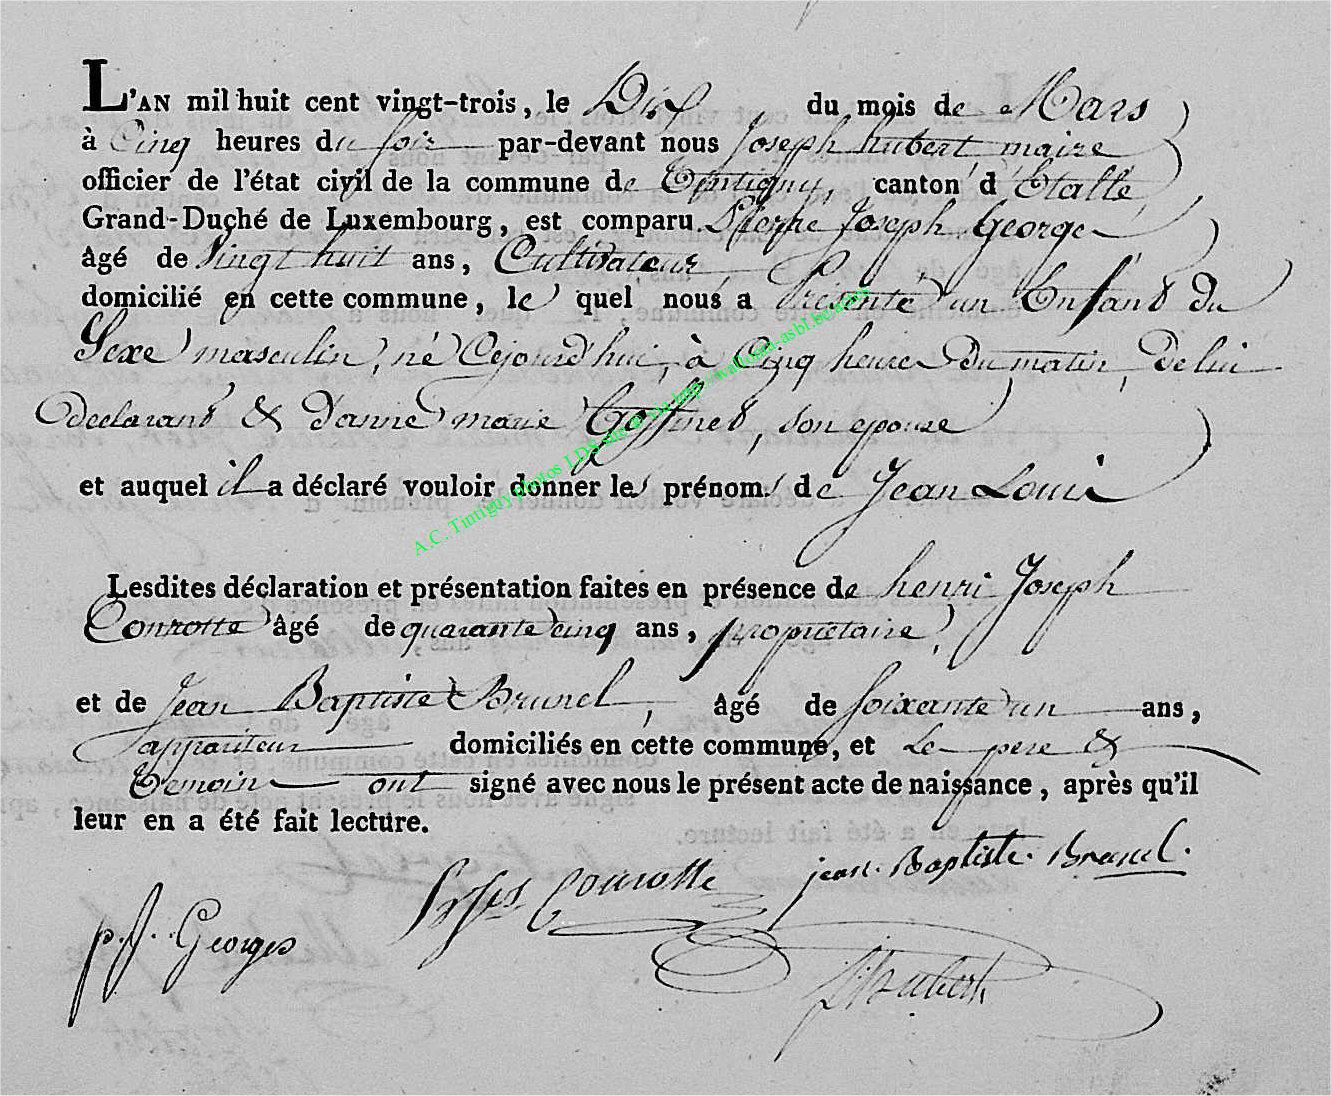 L'AN mil huit cent vingt-trois, le Dix du mois de Mars
à Cinq heures du soir par-devant nous Joseph hubert maire
officier de l'état civil de la commune de Tintigny, canton d'Etalle,
Grand-Duché de Luxembourg, est comparu Pierre Joseph George
âgé de Vingt huit ans, Cultivateur
domicilié en cette commune, le quel nous a Présenté un Enfant du
Sexe masculin, né Cejourd'hui, à Cinq heures Du matin, De lui
declarant & d'anne marie Goffinet, son epouse
et auquel il a déclaré vouloir donner les prénoms de Jean Louis
A.C. Tintigny photos LDS
Lesdites déclaration et présentation faites en présence de henri Joseph
Conrotte âgé de quarante cinq ans, propriétaire,
et de Jean Baptiste Brunel, âgé de soixante un ans,
appariteur domiciliés en cette commune, et Le pere &
Temoins ont signé avec nous le présent acte de naissance, après qu'il
leur en a été fait lecture.
jean. Baptiste. Brunel.
Conrotte
p. J. Georges
J hubert